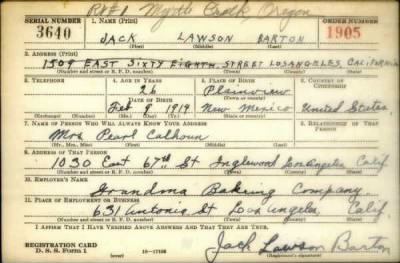 RFD 1 Myrtle Creek Oregon
SERIAL NUMBER 1. NAME (Print) ORDER NUMBER
3640 JACK LAWSON BARTON 1905
(First) (Middle) (Last)
3. ADDRESS (Print)
1509 EAST SIXTY EIGHTH STREET LOS ANGELES, CALIFORNIA
(Number and street or R. F. D. number) (Town) (County) (State)
3. TELEPHONE 4. AGE IN YEARS 5. PLACE OF BIRTH 6. COUNTRY OF CITIZENSHIP
26 Plainview
DATE OF BIRTH (Town or county)
Feb 9 1914 New Mexico United States
(Mo.) (Day) (Yr.) (State or country)
7. NAME OF PERSON WHO WILL ALWAYS KNOW YOUR ADDRESS 8. RELATIONSHIP OF THAT PERSON
Mrs Pearl Calhoun
(Mr., Mrs., Miss) (First) (Middle) (Last)
9. ADDRESS OF THAT PERSON
1030 East 67th St Inglewood Los Angeles Calif
(Number and street or R. F. D. number) (Town) (County) (State)
10. EMPLOYER'S NAME
Grandma Baking Company
11. PLACE OF EMPLOYMENT OR BUSINESS
631 Antonia St Los Angeles, Calif.
(Number and street or R. F. D. number) (Town) (County) (State)
I AFFIRM THAT I HAVE VERIFIED ABOVE ANSWERS AND THAT THEY ARE TRUE.
REGISTRATION CARD
D. S. S. Form 1 (over) 16-17105 Jack Lawson Barton
(Registrant's signature)